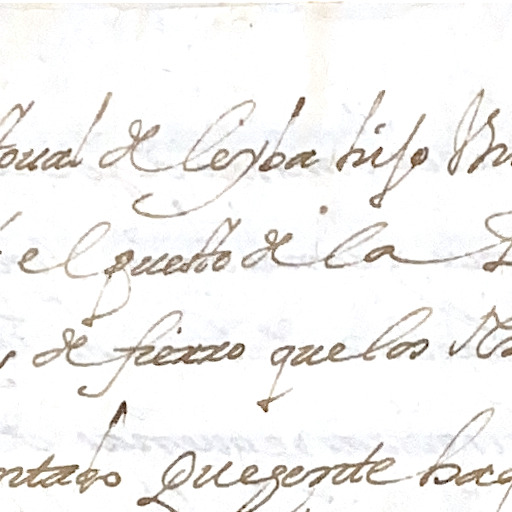 toual de leyba hijo
el puesto de la
de fierro que los
ntado que gente